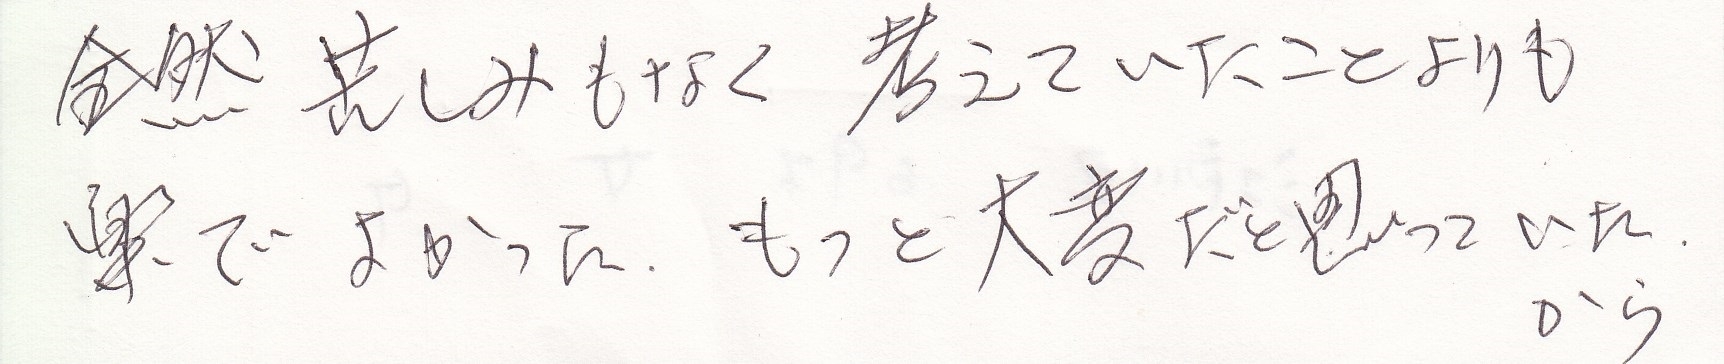 全然 苦しみもなく 考えていたことよりも
楽でよかった. もっと大変だと思っていた.
から